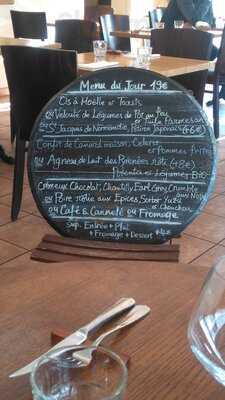 Menu du Jour 19€
Os à Moelle et Toasts
ou Velouté de Légumes de Pot au Feu
et Tuile Parmesan
ou St Jacques de Normandie, Patate Japonais (+6€)
Confit de Canard maison, Céleri
et Pommes
ou Agneau de Lait des Pyrénées rôti (+8€)
Polenta et Légumes
Crémeux Chocolat, Chantilly Earl Grey, Crumble
ou Poire rôtie aux Epices, Sorbet Yuzu
ou Café & Cannelé ou Fromage
Sup. Entrée + Plat
+ Fromage + Dessert